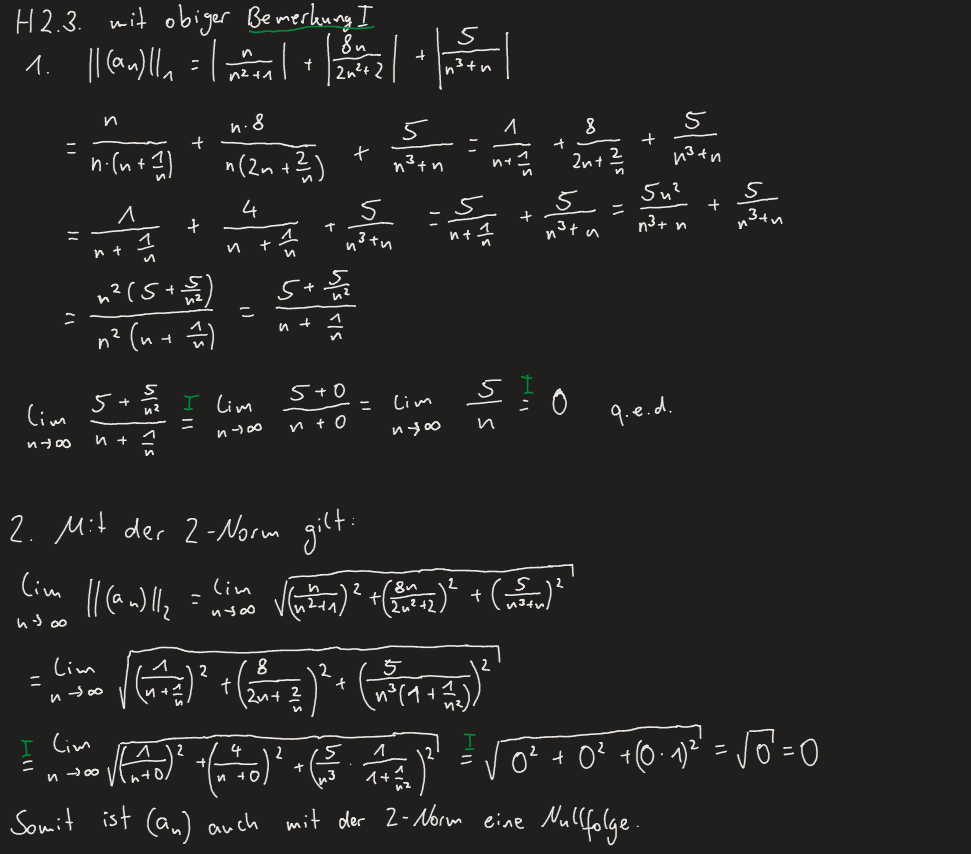 H2.3. mit obiger Bemerkung I
1. ||(aₙ)||₁ = |n/(n²+1)| + |8n/(2n²+2)| + |5/(n³+n)|
= n/(n·(n+1/n)) + n·8/(n(2n+2/n)) + 5/(n³+n) = 1/(n+1/n) + 8/(2n+2/n) + 5/(n³+n)
= 1/(n+1/n) + 4/(n+1/n) + 5/(n³+n) = 5/(n+1/n) + 5/(n³+n) = 5n²/(n³+n) + 5/(n³+n)
= n²(5+5/n²)/(n²(n+1/n)) = (5+5/n²)/(n+1/n)
lim n→∞ (5+5/n²)/(n+1/n) =ᴵ lim n→∞ (5+0)/(n+0) = lim n→∞ 5/n =ᴵ 0 q.e.d.
2. Mit der 2-Norm gilt:
lim n→∞ ||(aₙ)||₂ = lim n→∞ √((n/(n²+1))² + (8n/(2n²+2))² + (5/(n³+n))²)
= lim n→∞ √((1/(n+1/n))² + (8/(2n+2/n))² + (5/(n³(1+1/n²)))²)
=ᴵ lim n→∞ √((1/(n+0))² + (4/(n+0))² + (5/n³ · 1/(1+1/n²))²) =ᴵ √(0² + 0² + (0·1)²) = √0 = 0
Somit ist (aₙ) auch mit der 2-Norm eine Nullfolge.